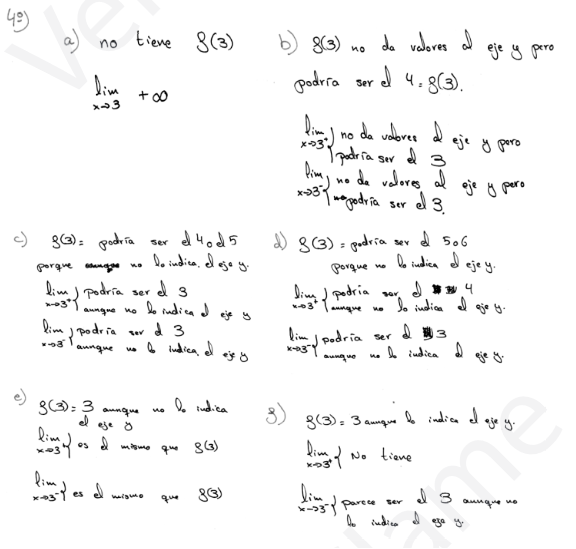 4º)
a) no tiene f(3)
lim x→3 +∞
b) f(3) no da valores al eje y pero
podría ser el 4 = f(3).
lim x→3⁺ } no da valores al eje y pero
podría ser el 3
lim x→3⁻ } no da valores al eje y pero
podría ser el 3.
c) f(3) = podría ser el 4 o el 5
porque no lo indica el eje y.
lim x→3⁺ } podría ser el 3
aunque no lo indica el eje y
lim x→3⁻ } podría ser el 3
aunque no lo indica el eje y
d) f(3) = podría ser el 5 o 6
porque no lo indica el eje y.
lim x→3⁺ } podría ser el 4
aunque no lo indica el eje y.
lim x→3⁻ } podría ser el 3
aunque no lo indica el eje y.
e) f(3) = 3 aunque no lo indica
el eje y
lim x→3⁺ { es el mismo que f(3)
lim x→3⁻ { es el mismo que f(3)
f) f(3) = 3 aunque lo indica el eje y.
lim x→3⁺ { No tiene
lim x→3⁻ } parece ser el 3 aunque no
lo indica el eje y.